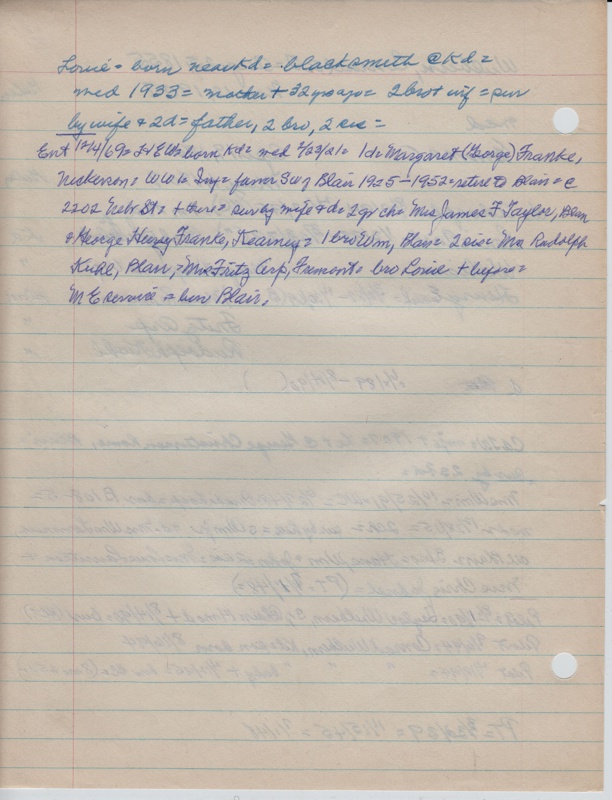 Louie = born near Kd = blacksmith @ Kd =
med 1933 = mother + 32 yrs ago = 2 bro + wif = sur
by wife & 2d = father, 2 bro, 2 sis =
Ent 12/4/69 = born Kd = med 2/23/21 = 1d = Margaret (George) Franke,
Nickerson = WW I = Inf = farm SW of Blair 1925 - 1952 = retire to Blair = @
2202 Nebr St = + there = sur by wife & d = 2 gr ch = Mrs James F Taylor, Blair
& George Henry Franke, Kearney = 1 bro Wm, Blair = 2 sis = Mrs Rudolph
Kuhl, Blair, = Mrs Fritz Arp, Fremont = bro Louie + before =
M E service = bur Blair.